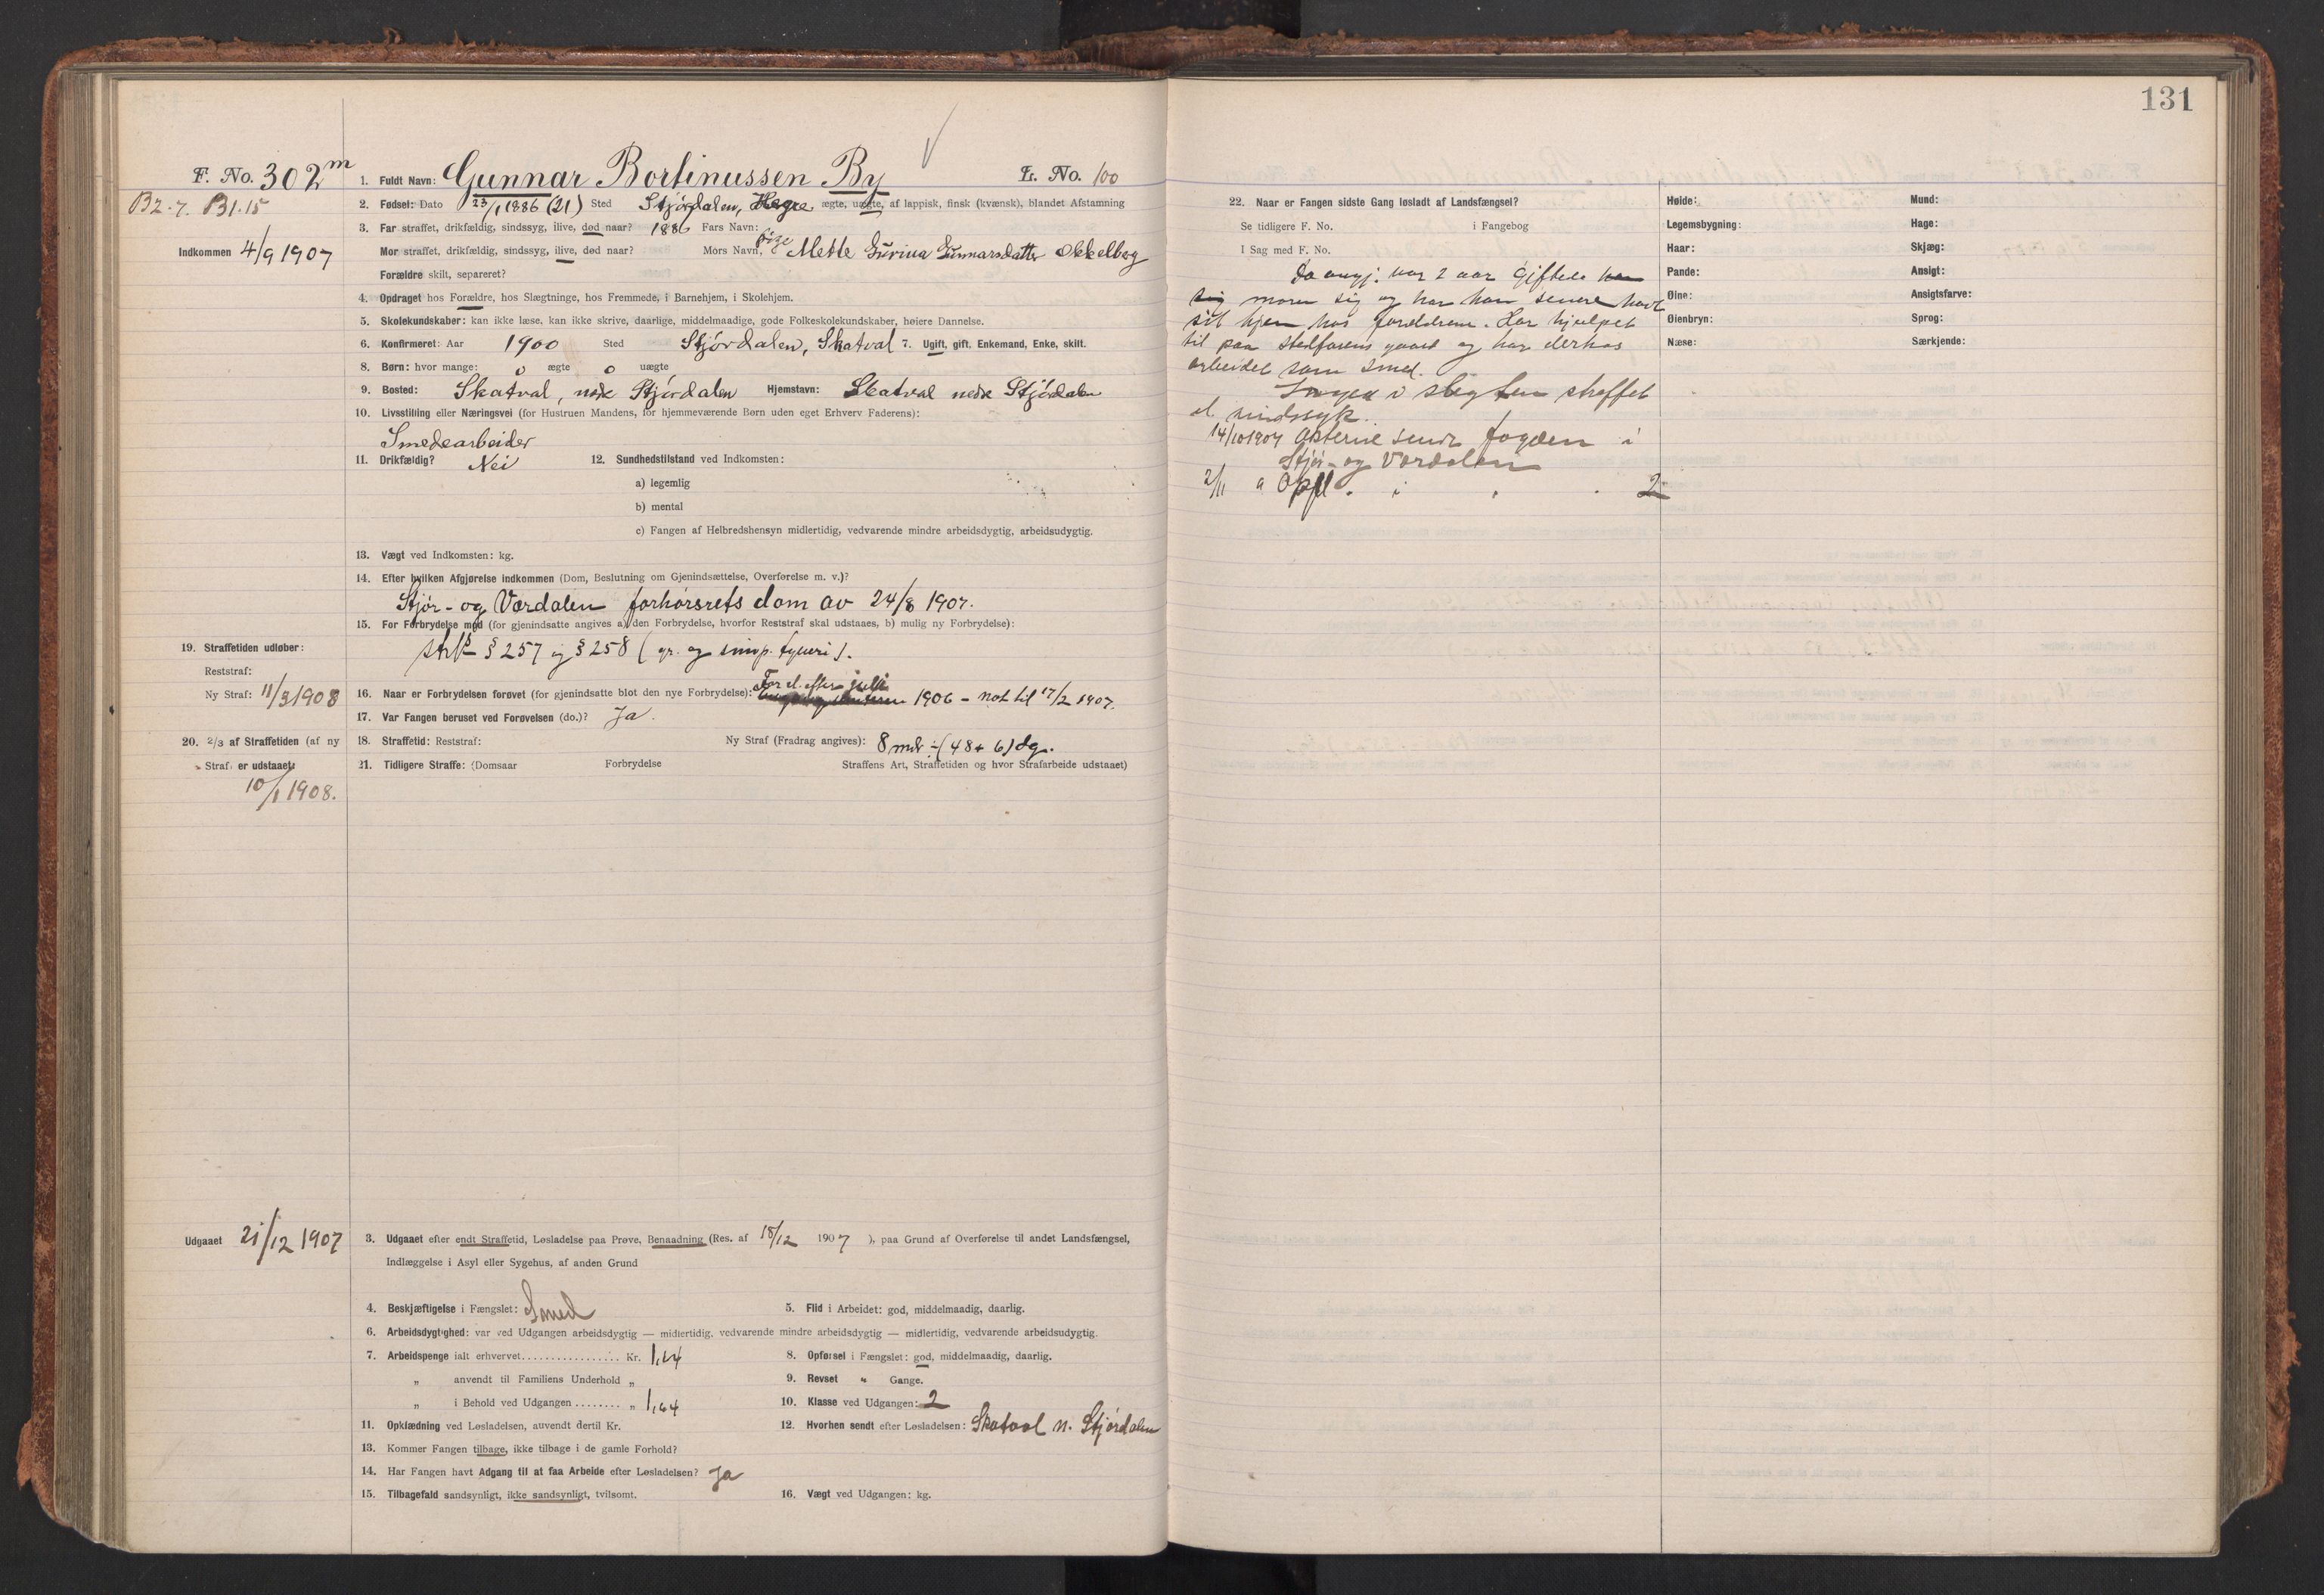 131
F. No. 302 m
B2.7. B1.15
Indkommen 4/9 1907
1. Fuldt Navn: Gunnar Bortinussen By L. No. 100
2. Fødsel: Dato 23/1 1886 (21) Sted Stjørdalen, Hegre, ægte, uægte, af lappisk, finsk (kvænsk), blandet Afstamning
3. Far straffet, drikfældig, sindssyg, ilive, død naar? 1886 Fars Navn:
Mor straffet, drikfældig, sindssyg, ilive, død naar? Mors Navn, pige Mette Gurina Gunnarsdatter Okkelberg
Forældre skilt, separeret?
4. Opdraget hos Forældre, hos Slægtninge, hos Fremmede, i Barnehjem, i Skolehjem.
5. Skolekundskaber: kan ikke læse, kan ikke skrive, daarlige, middelmaadige, gode Folkeskolekundskaber, høiere Dannelse.
6. Konfirmeret: Aar 1900 Sted Stjørdalen, Skatval 7. Ugift, gift, Enkemand, Enke, skilt.
8. Børn: hvor mange: 0 ægte 0 uægte
9. Bosted: Skatval, nedr Stjørdalen Hjemstavn: Skatval nedr Stjørdalen
10. Livsstilling eller Næringsvei (for Hustruen Mandens, for hjemmeværende Børn uden eget Erhverv Faderens):
Smedearbeider
11. Drikfældig? Nei 12. Sundhedstilstand ved Indkomsten:
a) legemlig
b) mental
c) Fangen af Helbredshensyn midlertidig, vedvarende mindre arbeidsdygtig, arbeidsudygtig.
13. Vægt ved Indkomsten: kg.
14. Efter hvilken Afgjørelse indkommen (Dom, Beslutning om Gjenindsættelse, Overførelse m. v.)?
Stjør- og Værdalen forhørsrets dom av 24/8 1907.
15. For Forbrydelse mod (for gjenindsatte angives a) den Forbrydelse, hvorfor Reststraf skal udstaaes, b) mulig ny Forbrydelse):
strfl § 257 og § 258 (gr. og simp. tyveri).
19. Straffetiden udløber:
Reststraf:
Ny Straf: 11/3 1908
16. Naar er Forbrydelsen forøvet (for gjenindsatte blot den nye Forbrydelse): For el. efter juli 1906 - nat til 17/2 1907.
17. Var Fangen beruset ved Forøvelsen (do.)? Ja.
20. 2/3 af Straffetiden (af ny Straf) er udstaaet:
10/1 1908.
18. Straffetid: Reststraf: Ny Straf (Fradrag angives): 8 mdr ÷ (48 + 6) dg.
21. Tidligere Straffe: (Domsaar Forbrydelse Straffens Art, Straffetiden og hvor Strafarbeide udstaaet)
Udgaaet 21/12 1907
3. Udgaaet efter endt Straffetid, Løsladelse paa Prøve, Benaadning (Res. af 18/12 1907 ), paa Grund af Overførelse til andet Landsfængsel,
Indlæggelse i Asyl eller Sygehus, af anden Grund
4. Beskjæftigelse i Fængslet: Smed 5. Flid i Arbeidet: god, middelmaadig, daarlig.
6. Arbeidsdygtighed: var ved Udgangen arbeidsdygtig — midlertidig, vedvarende mindre arbeidsdygtig — midlertidig, vedvarende arbeidsudygtig.
7. Arbeidspenge ialt erhvervet................ Kr. 1,64 8. Opførsel i Fængslet: god, middelmaadig, daarlig.
„ anvendt til Familiens Underhold „ 9. Revset „ Gange.
„ i Behold ved Udgangen ........ „ 1,64 10. Klasse ved Udgangen: 2
11. Opklædning ved Løsladelsen, anvendt dertil Kr. 12. Hvorhen sendt efter Løsladelsen: Skatval n. Stjørdalen
13. Kommer Fangen tilbage, ikke tilbage i de gamle Forhold?
14. Har Fangen havt Adgang til at faa Arbeide efter Løsladelsen? Ja
15. Tilbagefald sandsynligt, ikke sandsynligt, tvilsomt. 16. Vægt ved Udgangen: kg.
22. Naar er Fangen sidste Gang løsladt af Landsfængsel?
Se tidligere F. No. i Fangebog
I Sag med F. No.
Da angj. var 2 aar giftede han
sig moren sig og har han senere havt
sit hjem hos forældrene. Har hjulpet
til paa stedfarens gaard og har derhos
arbeidet som smed.
Ingen i slegten straffet
el. sindssyk.
14/10 1907 Akterne sendt fogden i
Stjør- og Værdalen
2/11 " Opfl. i 2
Høide: Mund:
Legemsbygning: Hage:
Haar: Skjæg:
Pande: Ansigt:
Øine: Ansigtsfarve:
Øienbryn: Sprog:
Næse: Særkjende: